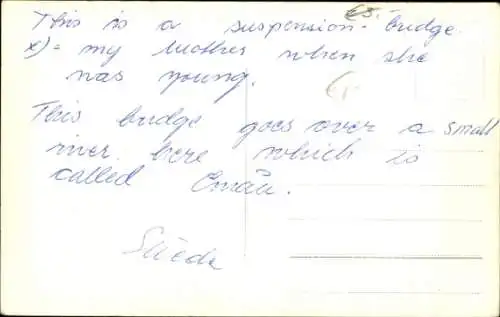 This is a suspension-bridge.
x) = my Mother when she
was young.
This bridge goes over a small
river here which is
called Emån.
Suède